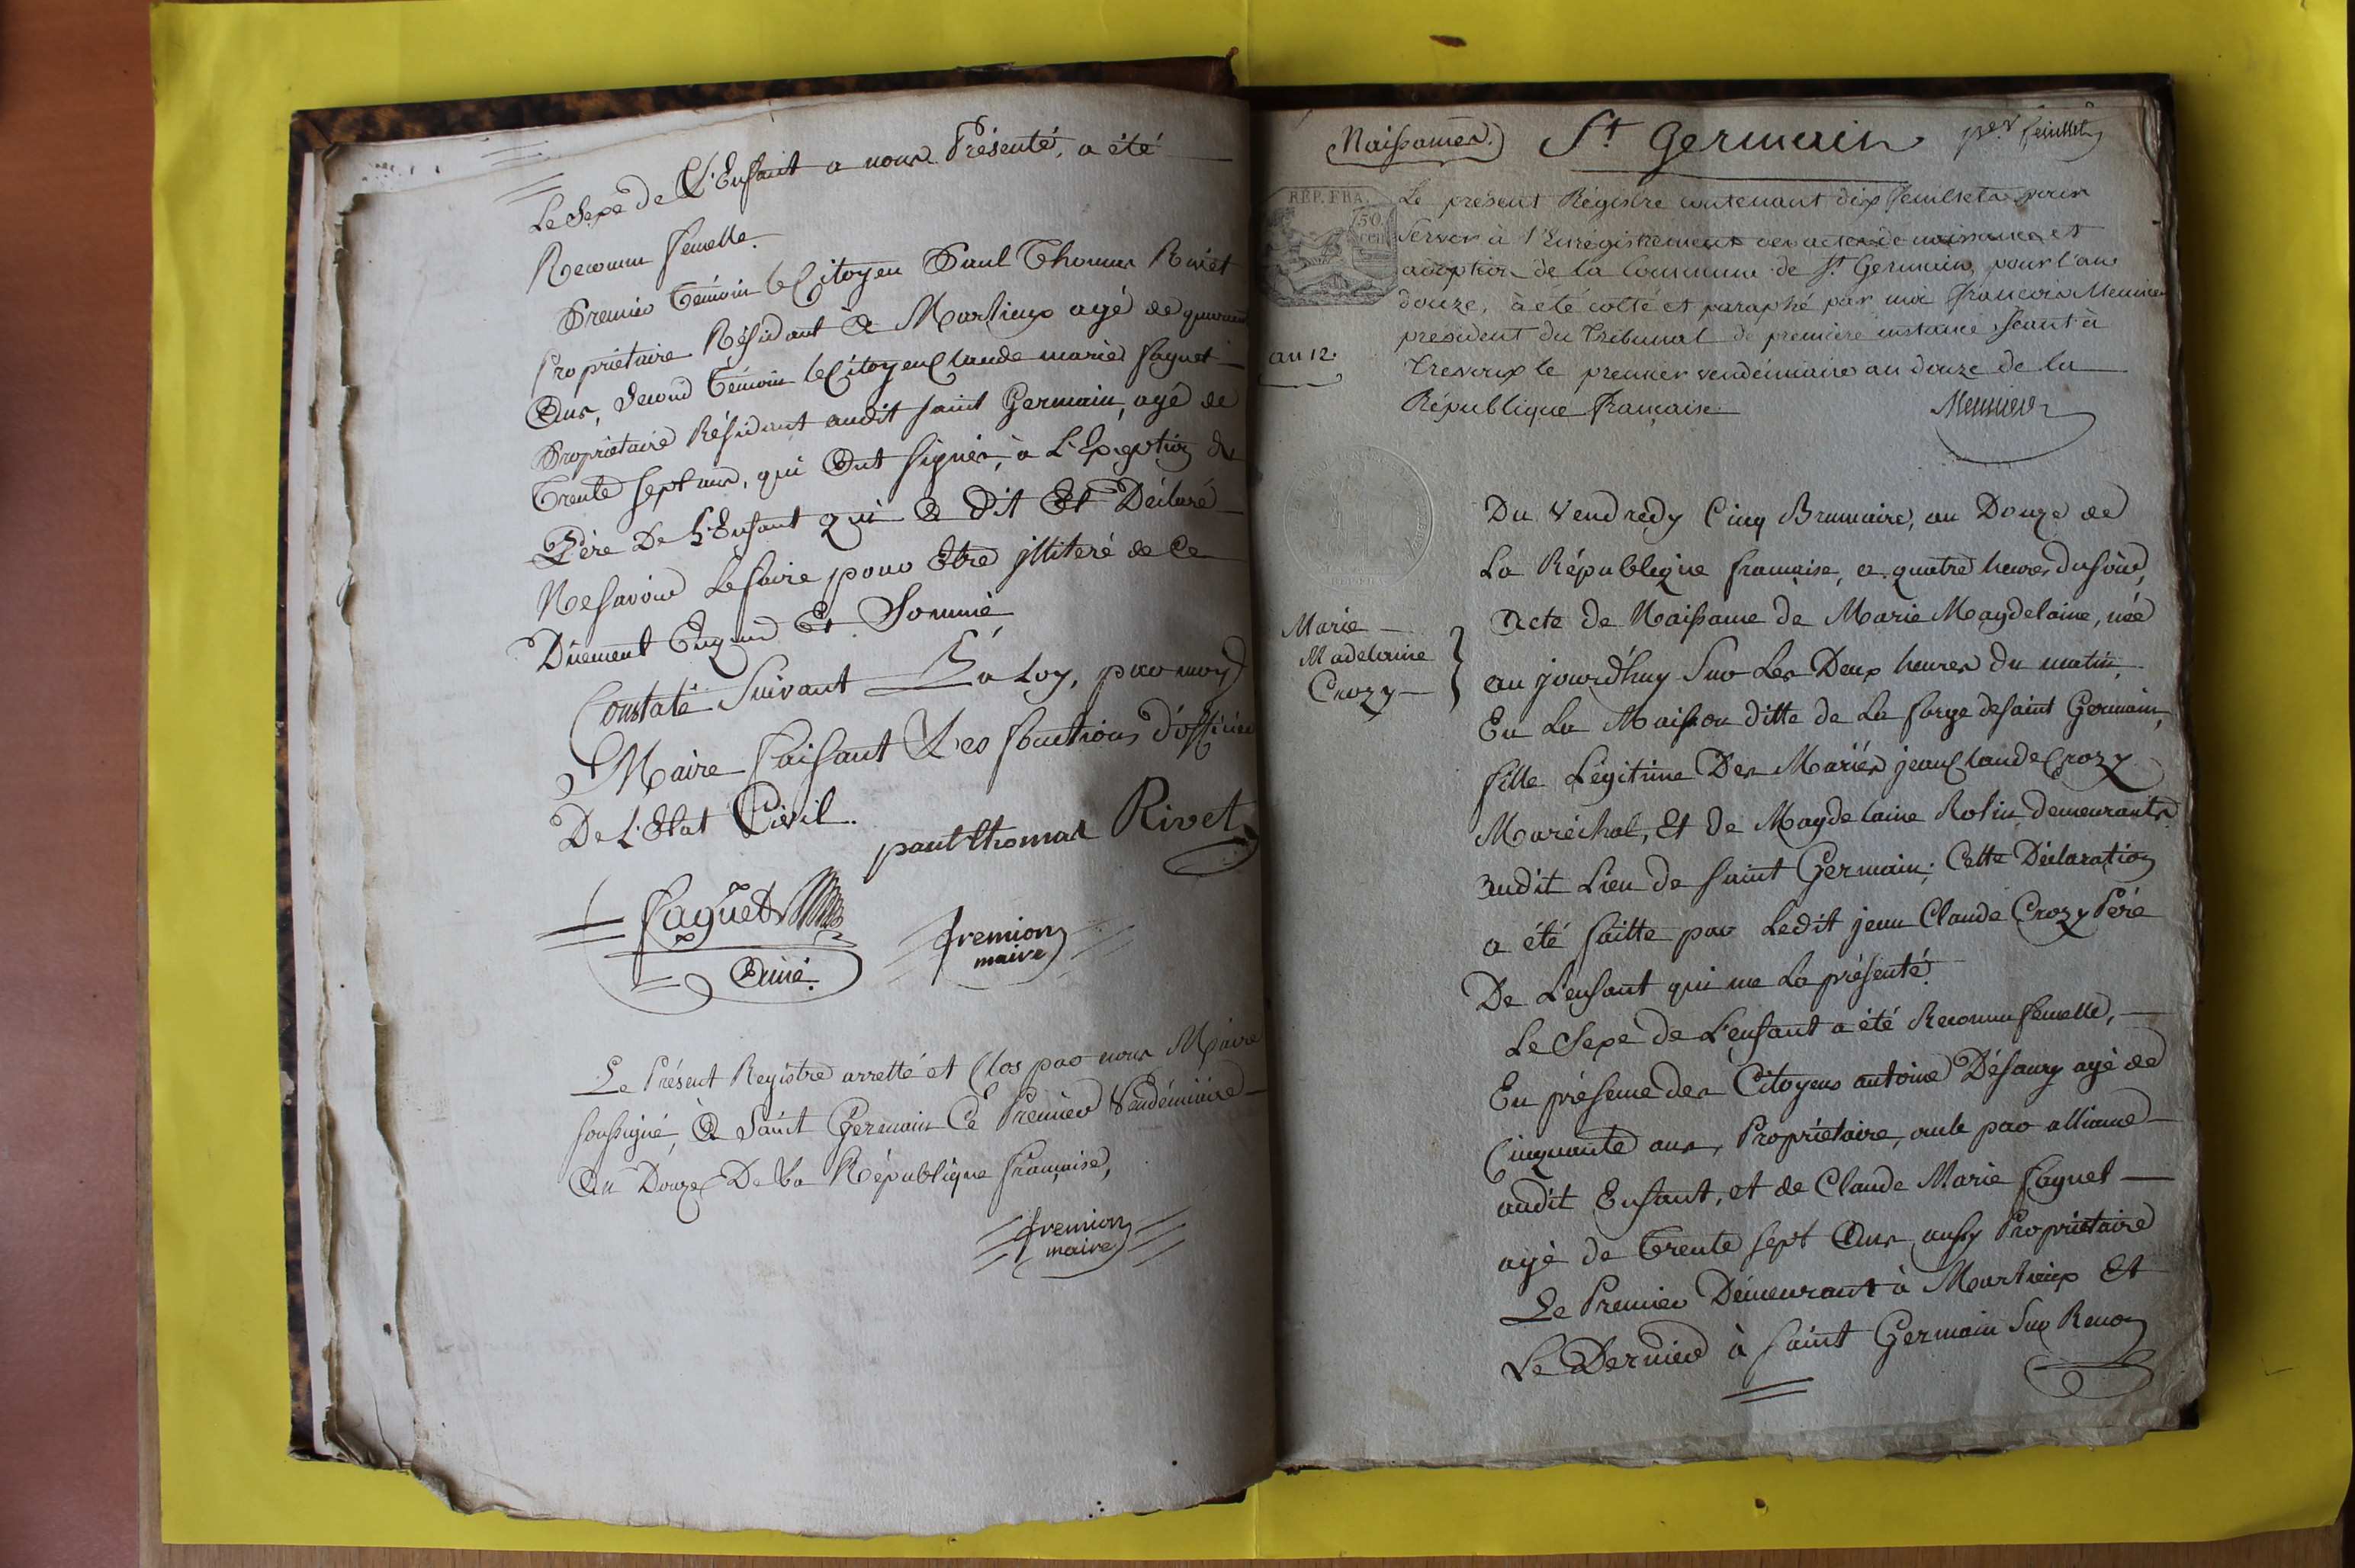 Le Sexe de L'Enfant a nous Présenté, a été
Reconnu femelle.
Premier témoin le Citoyen Paul Thomas Rivet
Propriétaire Résidant a Martieux agé de quarante
Ans, Second témoin le Citoyen Claude marie faguet
Propriétaire Résidant audit saint Germain, agé de
trente sept ans, qui Ont signés, à L'Exeption du
Père De L'Enfant qui a dit Et Déclaré
Ne savoir Le faire pour Etre jlliteré de Ce
Dûement Enquis Et Sommé
Constaté Suivant La Loy, par moy
Maire faisant Les fonctions d'officier
De L'Etat Civil.
paul thomas Rivet
faguet
Ainé.
fremion
maire
Le Présent Registre arretté et Clos par nous Maire
soussigné, A Saint Germain Ce Premier Vendémiaire
An Douze De La République française,
fremion
maire
Naissances. St Germain 1er feuillet
REP. FRA.
50
cen
Le présent Régistre contenant dix feuillets pour
servir à l'Enrégistrement des actes de naissance et
adoption de la Commune de St Germain, pour l'an
douze, à été cotté et paraphé par moi françois Mennier
président du tribunal de première instance séant à
Trevoux le premier vendémiaire an douze de la
République française.
Mennier
an 12.
Du Vendredy Cinq Brumaire, an Douze de
La République française, a quatre heures du soir,
Acte de Naissance de Marie Magdelaine, née
au jourd'huy Sur Les Deux heures du matin,
En La Maison ditte de La forge de saint Germain,
fille Légitime Des Mariés jean Claude Crozy
Maréchal, Et de Magdelaine Robin demeurants
audit Lieu de saint Germain; Cette Déclaration
a été faitte par Ledit jean Claude Crozy Père
De L'enfant qui me La présenté.
Le Sexe de L'enfant a été Reconnu femelle,
En présence des Citoyens antoine Désaury agé de
Cinquante ans, Propriétaire, oncle par alliance
audit Enfant, et de Claude Marie faguet
agé de trente sept Ans aussy Propriétaire
Le Premier Démeurant à Martieux Et
Le Dernier à saint Germain Sur Renon
Marie
Madelaine
Crozy